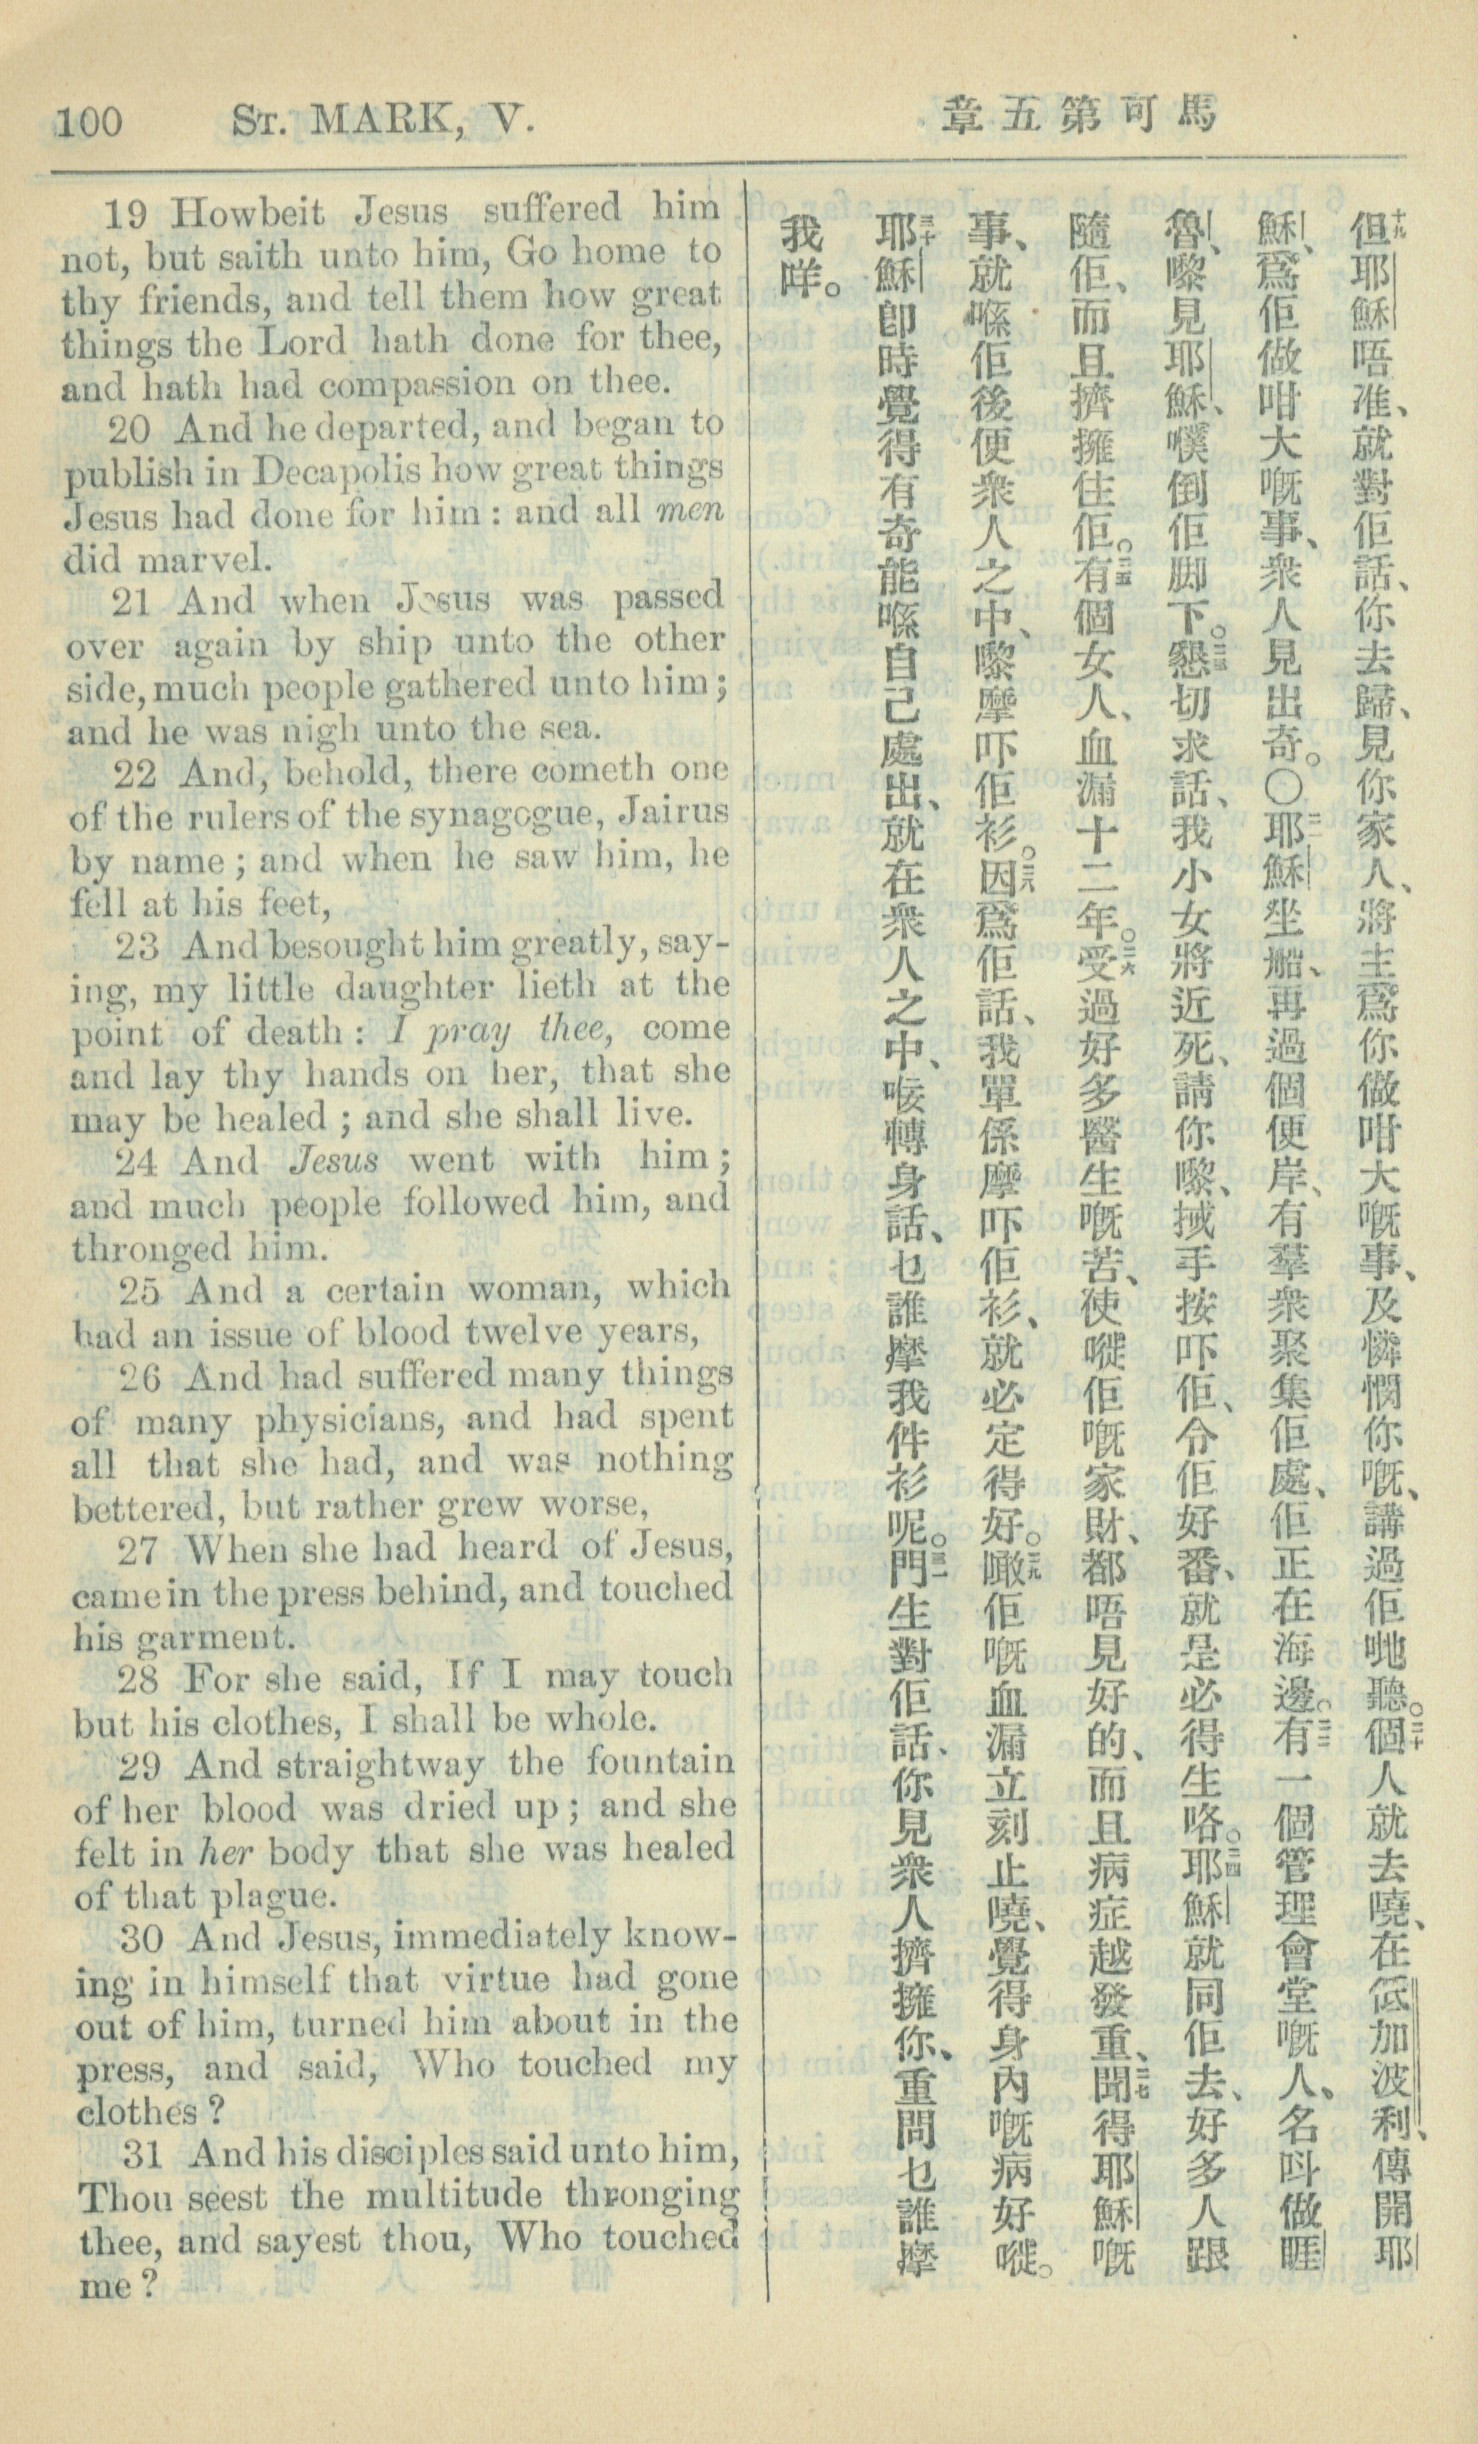 100 ST. MARK, V.
章五第可馬
19 Howbeit Jesus suffered him
not, but saith unto him, Go home to
thy friends, and tell them how great
things the Lord hath done for thee,
and hath had compassion on thee.
20 And he departed, and began to
publish in Decapolis how great things
Jesus had done for him : and all men
did marvel.
21 And when Jesus was passed
over again by ship unto the other
side, much people gathered unto him ;
and he was nigh unto the sea.
22 And, behold, there cometh one
of the rulers of the synagogue, Jairus
by name ; and when he saw him, he
fell at his feet,
23 And besought him greatly, say-
ing, my little daughter lieth at the
point of death : I pray thee, come
and lay thy hands on her, that she
may be healed ; and she shall live.
24 And Jesus went with him ;
and much people followed him, and
thronged him.
25 And a certain woman, which
had an issue of blood twelve years,
26 And had suffered many things
of many physicians, and had spent
all that she had, and was nothing
bettered, but rather grew worse,
27 When she had heard of Jesus,
came in the press behind, and touched
his garment.
28 For she said, If I may touch
but his clothes, I shall be whole.
29 And straightway the fountain
of her blood was dried up ; and she
felt in her body that she was healed
of that plague.
30 And Jesus, immediately know-
ing in himself that virtue had gone
out of him, turned him about in the
press, and said, Who touched my
clothes ?
31 And his disciples said unto him,
Thou seest the multitude thronging
thee, and sayest thou, Who touched
me ?
十九但耶穌唔准、就對佢話、你去歸、見你家人、將主爲你做咁大嘅事、及憐憫你嘅、講過佢哋聽。二十個人就去嘵、在低加波利、傳開耶
穌、爲佢做咁大嘅事、衆人見出奇。〇二一耶穌坐船、再過個便岸、有羣衆聚集佢處、佢正在海邊。二二有一個管理會堂嘅人、名叫做睚
魯、嚟見耶穌、噗倒佢脚下。二三懇切求話、我小女將近死、請你嚟、㧕手按吓佢、令佢好番、就是必得生咯。二四耶穌就同佢去、好多人跟
隨佢、而且擠擁住佢。二五有個女人、血漏十二年。二六受過好多醫生嘅苦、使嘥佢嘅家財、都唔見好的、而且病症越發重、二七聞得耶穌嘅
事、就喺佢後便衆人之中、嚟摩吓佢衫。二八因爲佢話、我單係摩吓佢衫、就必定得好。二九瞰佢嘅血漏立刻止嘵、覺得身內嘅病好嘥。
三十耶穌卽時覺得有奇能喺自己處出、就在衆人之中、㖭轉身話、乜誰摩我件衫呢。三一門生對佢話、你見衆人擠擁你、重問乜誰摩
我咩。